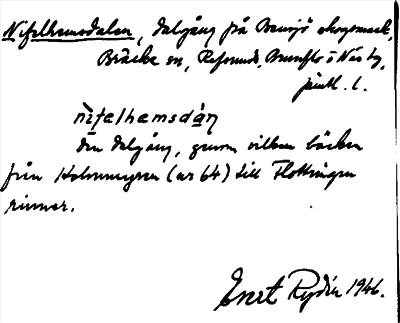 Nifelhemsdalen, dalgång på Bensjö skogsmark,
Bräcke sn, Refsunds, Brunflo o Näs tg,
Jämtl. l.
nìfelhemsdàn
den dalgång, genom vilken bäcken
från Kolmmyren (nr 64) till Flottingen
rinner.
Enert Rydén 1946.